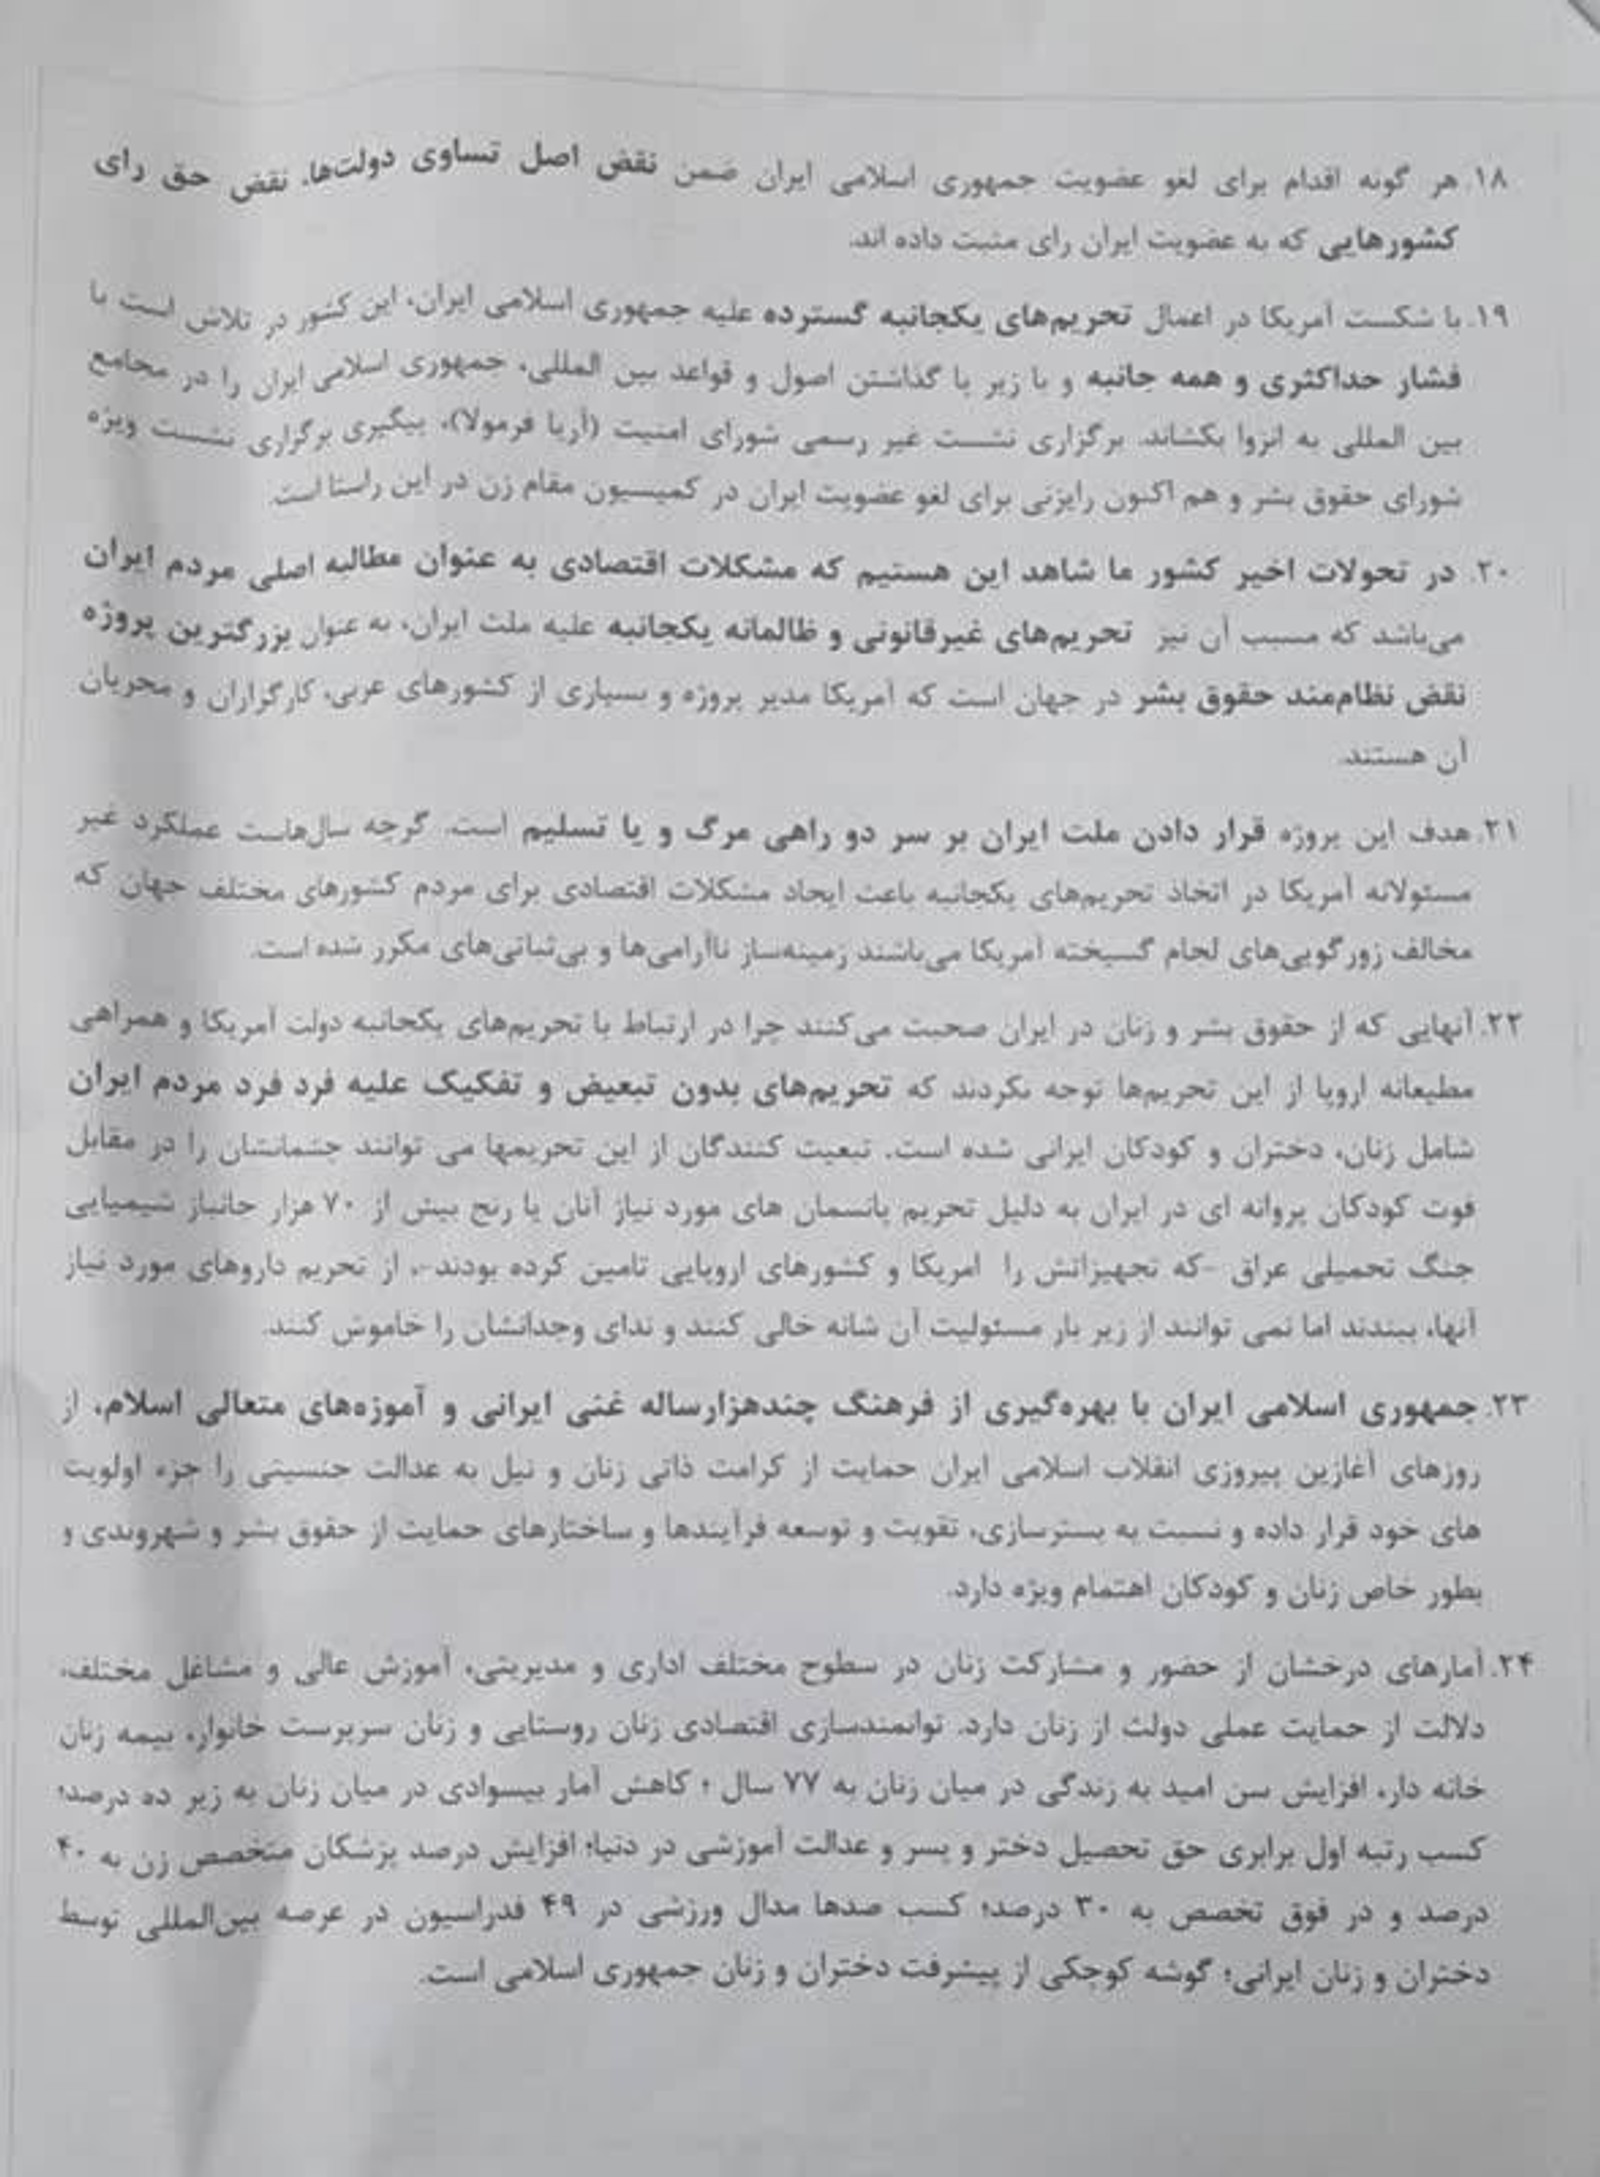 ۱۸. هر گونه اقدام برای لغو عضویت جمهوری اسلامی ایران ضمن نقض اصل تساوی دولت‌ها، نقض حق رای
کشورهایی که به عضویت ایران رای مثبت داده اند.
۱۹. با شکست آمریکا در اعمال تحریم‌های یکجانبه گسترده علیه جمهوری اسلامی ایران، این کشور در تلاش است با
فشار حداکثری و همه جانبه و با زیر پا گذاشتن اصول و قواعد بین المللی، جمهوری اسلامی ایران را در مجامع
بین المللی به انزوا بکشاند. برگزاری نشست غیر رسمی شورای امنیت (آریا فرمولا)، پیگیری برگزاری نشست ویژه
شورای حقوق بشر و هم اکنون رایزنی برای لغو عضویت ایران در کمیسیون مقام زن در این راستا است.
۲۰. در تحولات اخیر کشور ما شاهد این هستیم که مشکلات اقتصادی به عنوان مطالبه اصلی مردم ایران
می‌باشد که مسبب آن نیز تحریم‌های غیرقانونی و ظالمانه یکجانبه علیه ملت ایران، به عنوان بزرگترین پروژه
نقض نظام‌مند حقوق بشر در جهان است که آمریکا مدیر پروژه و بسیاری از کشورهای غربی، کارگزاران و مجریان
آن هستند.
۲۱. هدف این پروژه قرار دادن ملت ایران بر سر دو راهی مرگ و یا تسلیم است. گرچه سال‌هاست عملکرد غیر
مسئولانه آمریکا در اتخاذ تحریم‌های یکجانبه باعث ایجاد مشکلات اقتصادی برای مردم کشورهای مختلف جهان که
مخالف زورگویی‌های لجام گسیخته آمریکا می‌باشند زمینه‌ساز ناآرامی‌ها و بی‌ثباتی‌های مکرر شده است.
۲۲. آنهایی که از حقوق بشر و زنان در ایران صحبت می‌کنند چرا در ارتباط با تحریم‌های یکجانبه دولت آمریکا و همراهی
مطیعانه اروپا از این تحریم‌ها توجه نکردند که تحریم‌های بدون تبعیض و تفکیک علیه فرد فرد مردم ایران
شامل زنان، دختران و کودکان ایرانی شده است. تبعیت کنندگان از این تحریمها می توانند چشمانشان را در مقابل
فوت کودکان پروانه ای در ایران به دلیل تحریم پانسمان های مورد نیاز آنان یا رنج بیش از ۷۰ هزار جانباز شیمیایی
جنگ تحمیلی عراق -که تجهیزاتش را امریکا و کشورهای اروپایی تامین کرده بودند-، از تحریم داروهای مورد نیاز
آنها، ببندند اما نمی توانند از زیر بار مسئولیت آن شانه خالی کنند و ندای وجدانشان را خاموش کنند.
۲۳. جمهوری اسلامی ایران با بهره‌گیری از فرهنگ چندهزارساله غنی ایرانی و آموزه‌های متعالی اسلام، از
روزهای آغازین پیروزی انقلاب اسلامی ایران حمایت از کرامت ذاتی زنان و نیل به عدالت جنسیتی را جزء اولویت
های خود قرار داده و نسبت به بسترسازی، تقویت و توسعه فرآیندها و ساختارهای حمایت از حقوق بشر و شهروندی و
بطور خاص زنان و کودکان اهتمام ویژه دارد.
۲۴. آمارهای درخشان از حضور و مشارکت زنان در سطوح مختلف اداری و مدیریتی، آموزش عالی و مشاغل مختلف،
دلالت از حمایت عملی دولت از زنان دارد. توانمندسازی اقتصادی زنان روستایی و زنان سرپرست خانوار، بیمه زنان
خانه دار، افزایش سن امید به زندگی در میان زنان به ۷۷ سال ؛ کاهش آمار بیسوادی در میان زنان به زیر ده درصد؛
کسب رتبه اول برابری حق تحصیل دختر و پسر و عدالت آموزشی در دنیا؛ افزایش درصد پزشکان متخصص زن به ۴۰
درصد و در فوق تخصص به ۳۰ درصد؛ کسب صدها مدال ورزشی در ۴۹ فدراسیون در عرصه بین‌المللی توسط
دختران و زنان ایرانی؛ گوشه کوچکی از پیشرفت دختران و زنان جمهوری اسلامی است.